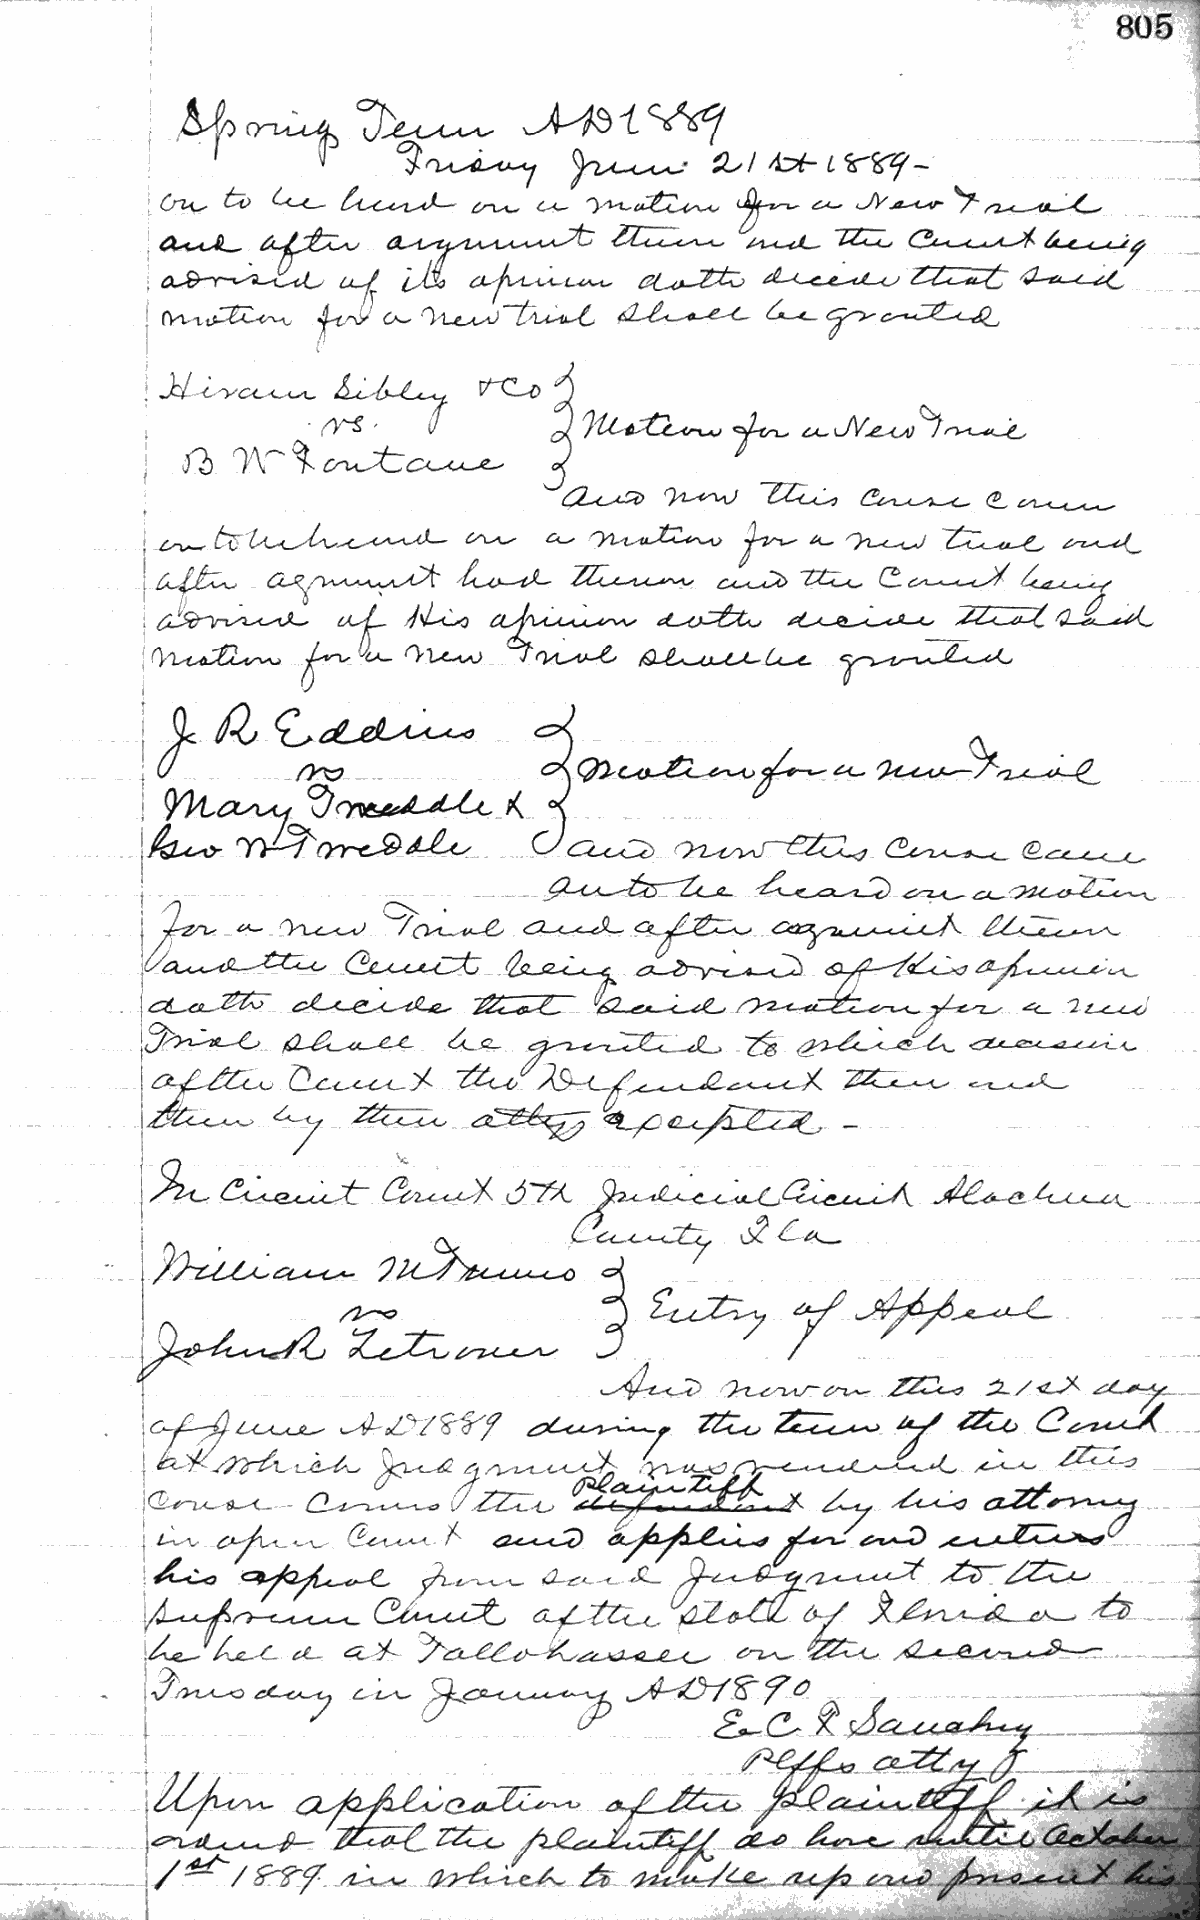 805
Spring Term AD 1889
Friday June 21st 1889-
on to be heard on a motion for a New Trial
and after argument thereon and the Court being
advised of its opinion doth decide that said
motion for a new trial shall be granted
Hiram Sibley & Co
vs.
Motion for a New Trial
B W Fontane
and now this cause comes
on to be heard on a motion for a new trial and
after agrument had thereon and the Court being
advised of His opinion doth decide that said
motion for a new Trial shall be granted
J R Eddins
vs
Motion for a new Trial
Mary Tweddle &
Geo W Tweddle
and now this cause came
on to be heard on a motion
for a new Trial and after agrument thereon
and the Court being advised of His opinion
doth decide that said motion for a new
Trial shall be granted to which decision
of the Court the Defendant then and
there by their attys excepted -
In Circuit Court 5th Judicial Circuit Alachua
County Fla
William M
vs
Entry of Appeal
John R Zetrouer
And now on this 21st day
of June AD 1889 during the term of the Court
at which Judgment was rendered in this
cause comes the Plaintiff defendant by his attorney
in open Court and applies for and enters
his appeal from said Judgment to the
Supreme Court of the state of Florida to
be held at Tallahassee on the second
Tuesday in January AD 1890
E. C. F. Sanchez
Plffs atty
Upon application of the plaintiff it is
ordered that the plaintiff do have until October
1st 1889 in which to make up and present his